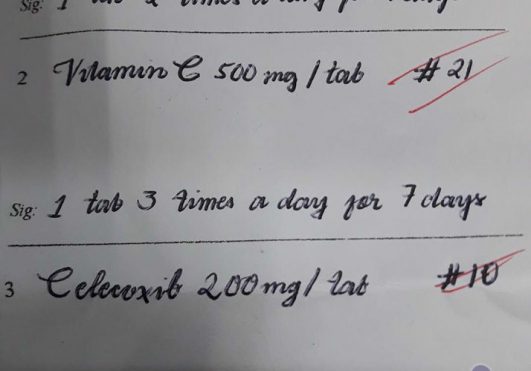 Sig: 1 tab 2 times a day
2 Vitamin C 500 mg / tab #21
Sig: 1 tab 3 times a day for 7 days
3 Celecoxib 200 mg / tab #10